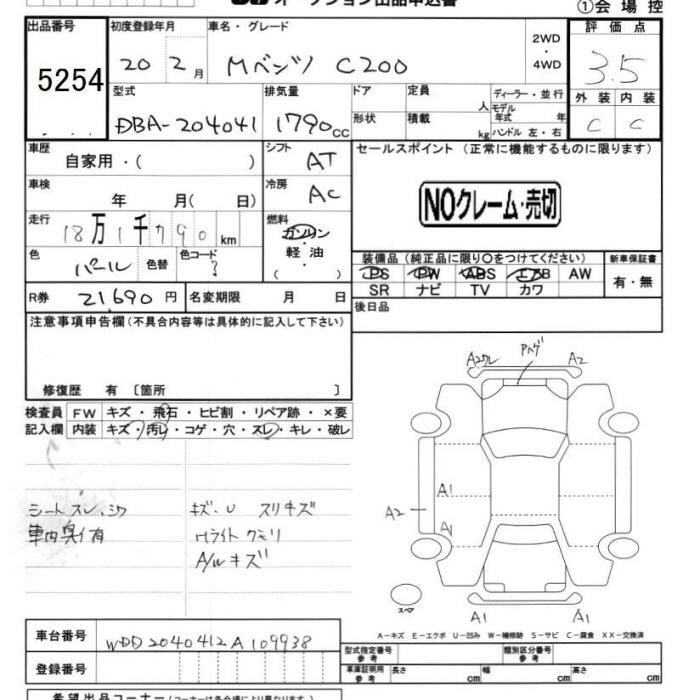 オークション出品申込書
①会場控
出品番号
5254
初度登録年月
20 2月
車名・グレード
Mベンツ C200
2WD
・
4WD
評価点
3.5
外装 内装
C C
型式
DBA-204041
排気量
1790cc
ドア
形状
定員 人
積載 kg
ディーラー・並行
モデル年式 年
ハンドル 左・右
車歴
自家用・( )
シフト AT
車検
年 月( 日)
冷房 AC
走行
18万1千790km
燃料
ガソリン
・
軽油
( )
色 パール 色替 色コード ?
セールスポイント (正常に機能するものに限ります)
NOクレーム・売切
装備品 (純正品に限り○をつけてください)
PS PW ABS エアB AW
SR ナビ TV カワ
新車保証書
有・無
R券 21690円 名変期限 月 日
後日品
注意事項申告欄 (不具合内容等は具体的に記入して下さい)
修復歴 有 〔箇所 〕
検査員記入欄
FW キズ・飛石・ヒビ割・リペア跡・×要
内装 キズ・汚レ・コゲ・穴・スレ・キレ・破レ
シートスレ、シワ
車内臭イ有
キズ・U スリキズ
Hライトクモリ
A/Wキズ
A2ワレ
A2
A2
A1
A1
A1
A1
スペア
A-キズ E-エクボ U-凹み W-補修跡 S-サビ C-腐食 XX-交換済
車台番号
WDD2040412A109938
登録番号
型式指定番号 参考
類別区分番号 参考
車庫証明用 参考 長さ cm 幅 cm 高さ cm
希望出品コーナー (コーナーは各会場により異なります)